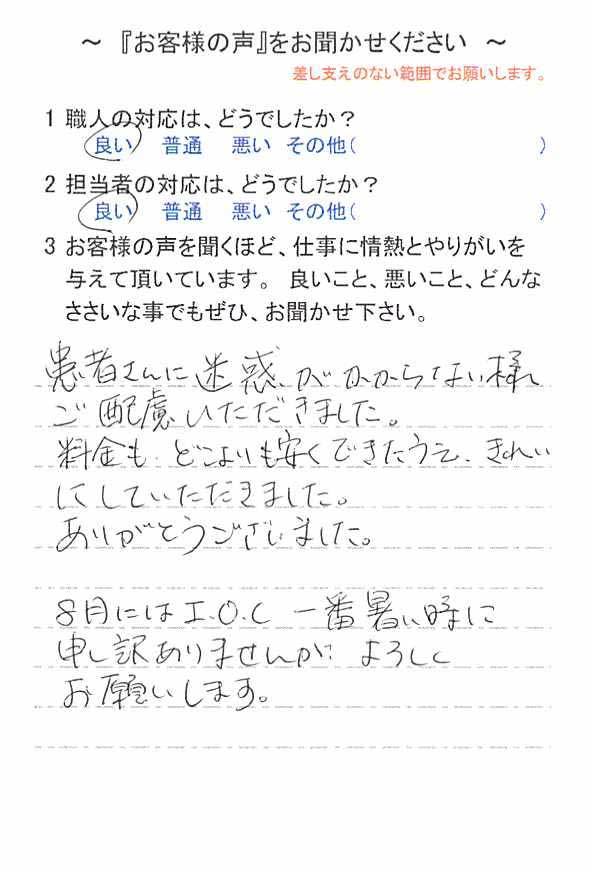 ～ 『お客様の声』をお聞かせください ～
差し支えのない範囲でお願いします。
1 職人の対応は、どうでしたか？
良い 普通 悪い その他( )
2 担当者の対応は、どうでしたか？
良い 普通 悪い その他( )
3 お客様の声を聞くほど、仕事に情熱とやりがいを
与えて頂いています。 良いこと、悪いこと、どんな
ささいな事でもぜひ、お聞かせ下さい。
患者さんに迷惑がかからない様
ご配慮いただきました。
料金も、どこよりも安くできたうえ、きれい
にしていただきました。
ありがとうございました。
8月にはI.O.C 一番暑い時に
申し訳ありませんが、よろしく
お願いします。